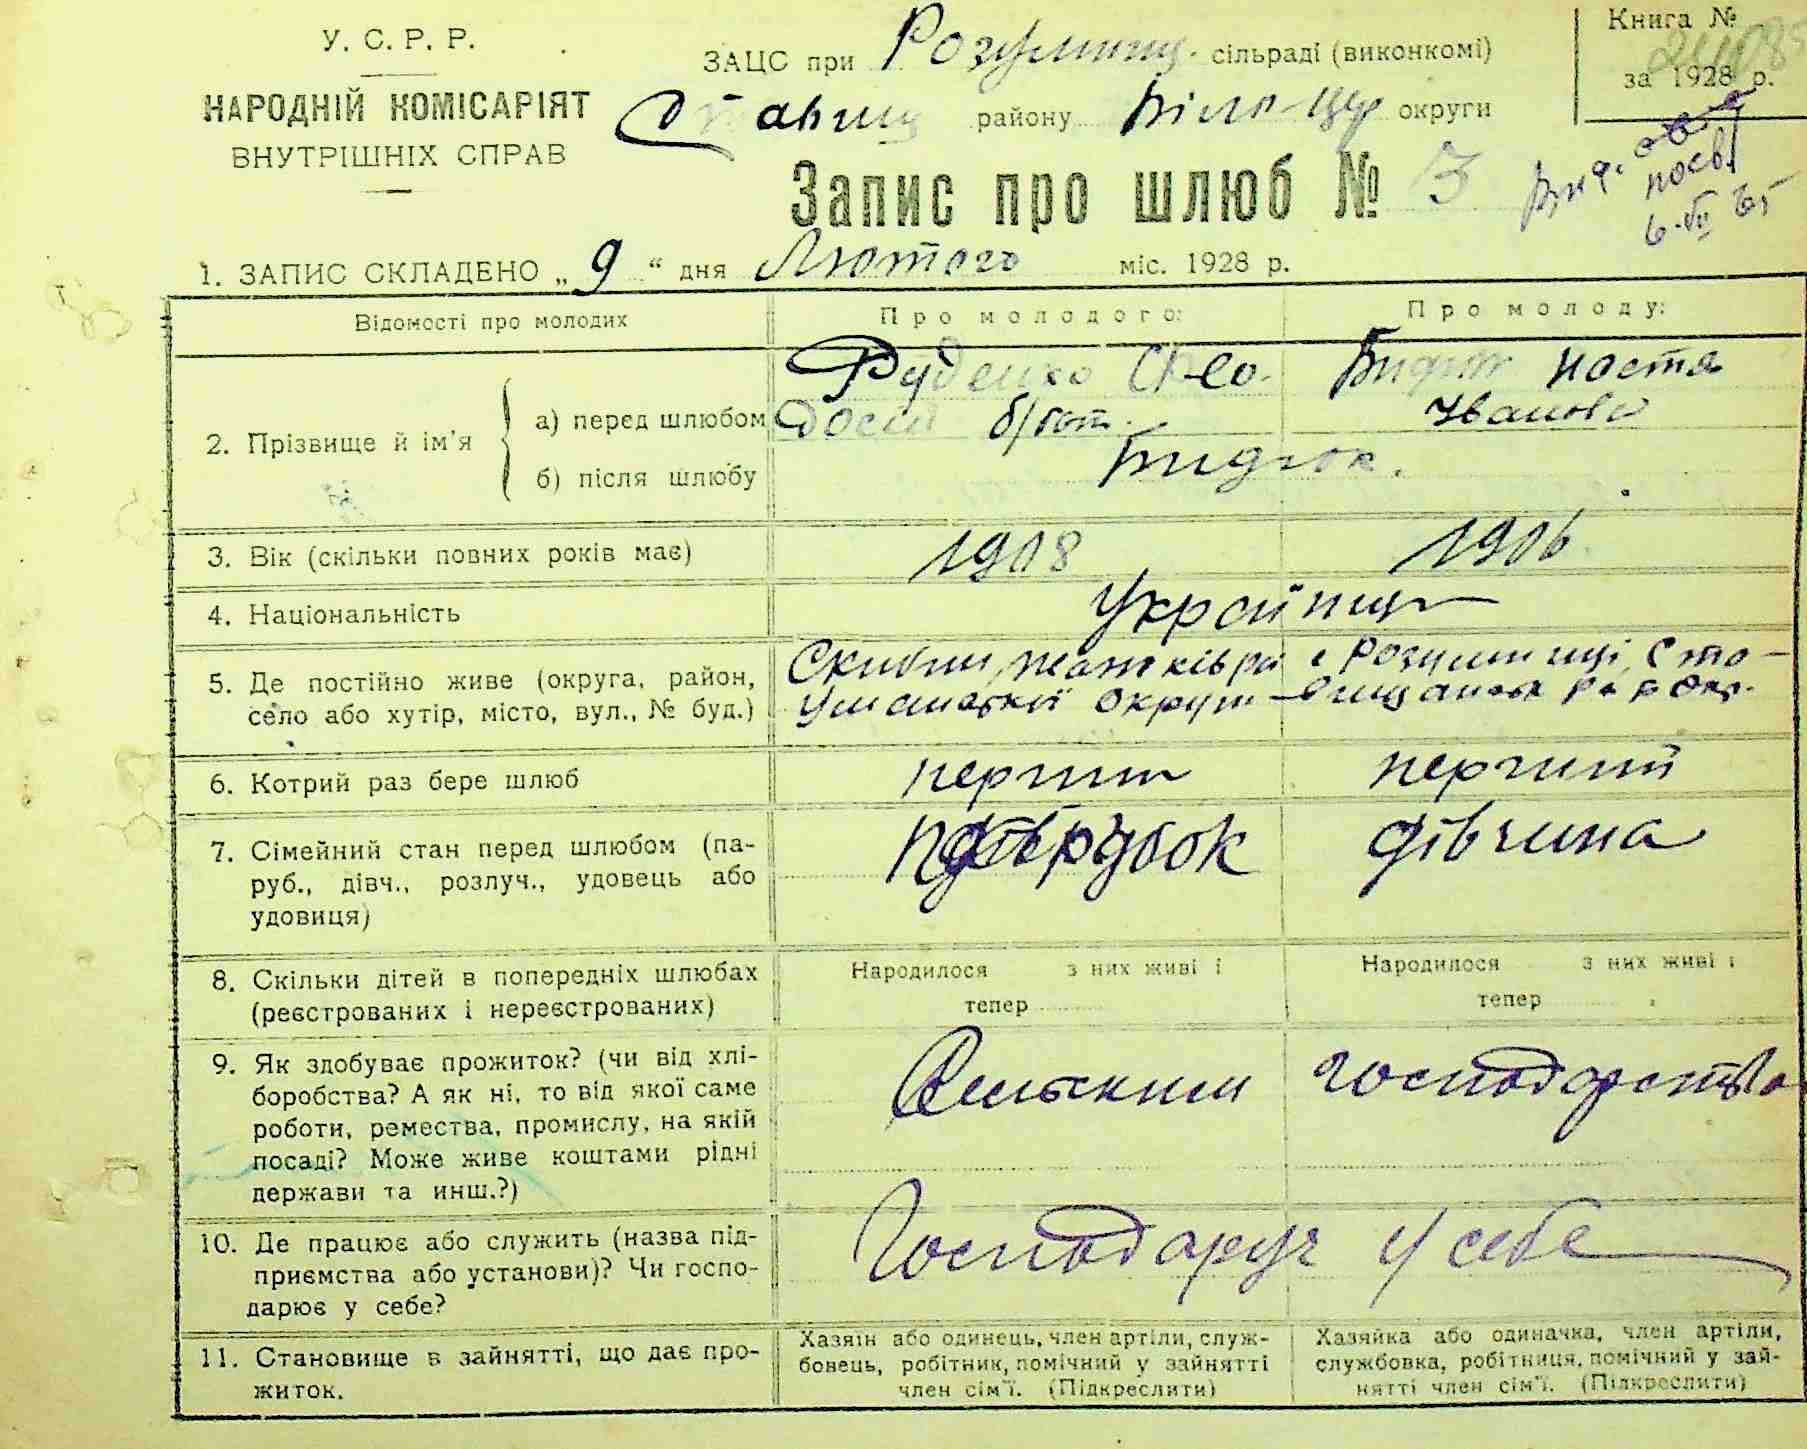 У. С. Р. Р.
НАРОДНІЙ КОМІСАРІЯТ
ВНУТРІШНІХ СПРАВ
ЗАЦС при сільраді (виконкомі)
району Біло-Цер округи
Книга №
за 1928 р.
Запис про шлюб № 3
посв.
1. ЗАПИС СКЛАДЕНО „ 9 “ дня Лютого міс. 1928 р.
Відомості про молодих
Про молодого:
Про молоду:
2. Прізвище й ім'я
а) перед шлюбом
Руденко Фео-
досій
Настя
Іванови
б) після шлюбу
3. Вік (скільки повних років має)
1908
1906
4. Національність
Українці
5. Де постійно живе (округа, район,
село або хутір, місто, вул., № буд.)
Уманської Округи
6. Котрий раз бере шлюб
перший
перший
7. Сімейний стан перед шлюбом (па-
руб., дівч., розлуч., удовець або
удовиця)
парубок
дівчина
8. Скільки дітей в попередніх шлюбах
(реєстрованих і нереєстрованих)
Народилося з них живі і
тепер
Народилося з них живі і
тепер
9. Як здобуває прожиток? (чи від хлі-
боробства? А як ні, то від якої саме
роботи, ремества, промислу, на якій
посаді? Може живе коштами рідні
держави та инш.?)
господарство
10. Де працює або служить (назва під-
приємства або установи)? Чи госпо-
дарює у себе?
у себе
11. Становище в зайнятті, що дає про-
житок.
Хазяїн або одинець, член артіли, служ-
бовець, робітник, помічний у зайнятті
член сім'ї. (Підкреслити)
Хазяйка або одиначка, член артіли,
службовка, робітниця, помічний у зай-
нятті член сім'ї. (Підкреслити)